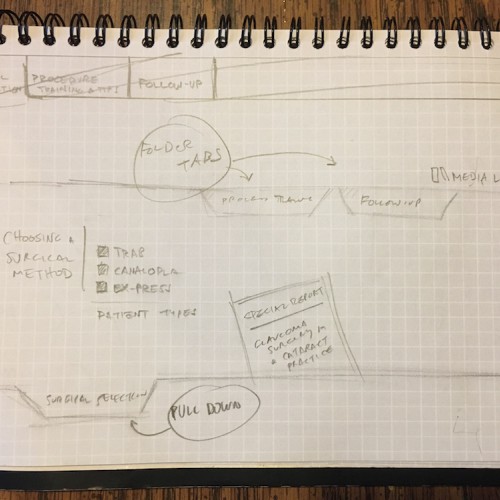 PROCEDURE
TRAINING & TIPS
FOLLOW-UP
FOLDER
TABS
MEDIA L
FOLLOW-UP
CHOOSING A
SURGICAL
METHOD
TRAB
CANALOPLA
EX-PRESS
PATIENT TYPES
SPECIAL REPORT
GLAUCOMA
SURGERY IN
A CATARACT
PRACTICE
SURGICAL SELECTION
PULL DOWN